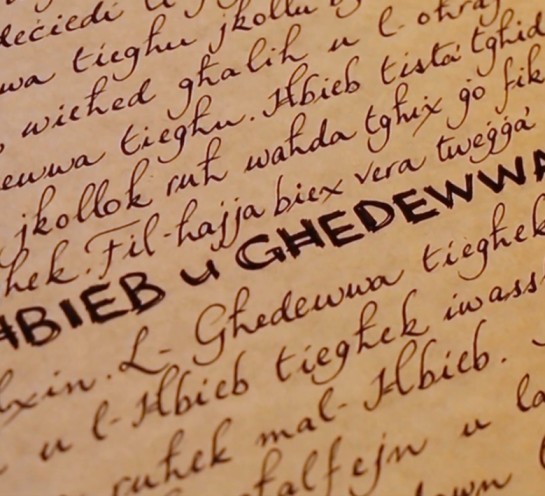 deċiedi
wa tiegħu jkollu
wieħed għalih u l-oħraj
ewwa tiegħu. Ħbieb tista' tgħid
jkollok ruħ waħda tgħix ġo fik
hek. Fil-ħajja biex vera tweġġa'
ĦBIEB u GĦEDEWWA
bxin. L-Għedewwa tiegħek
u l-Ħbieb tiegħek iwass
ruħek mal-Ħbieb.
ħalfejn u la